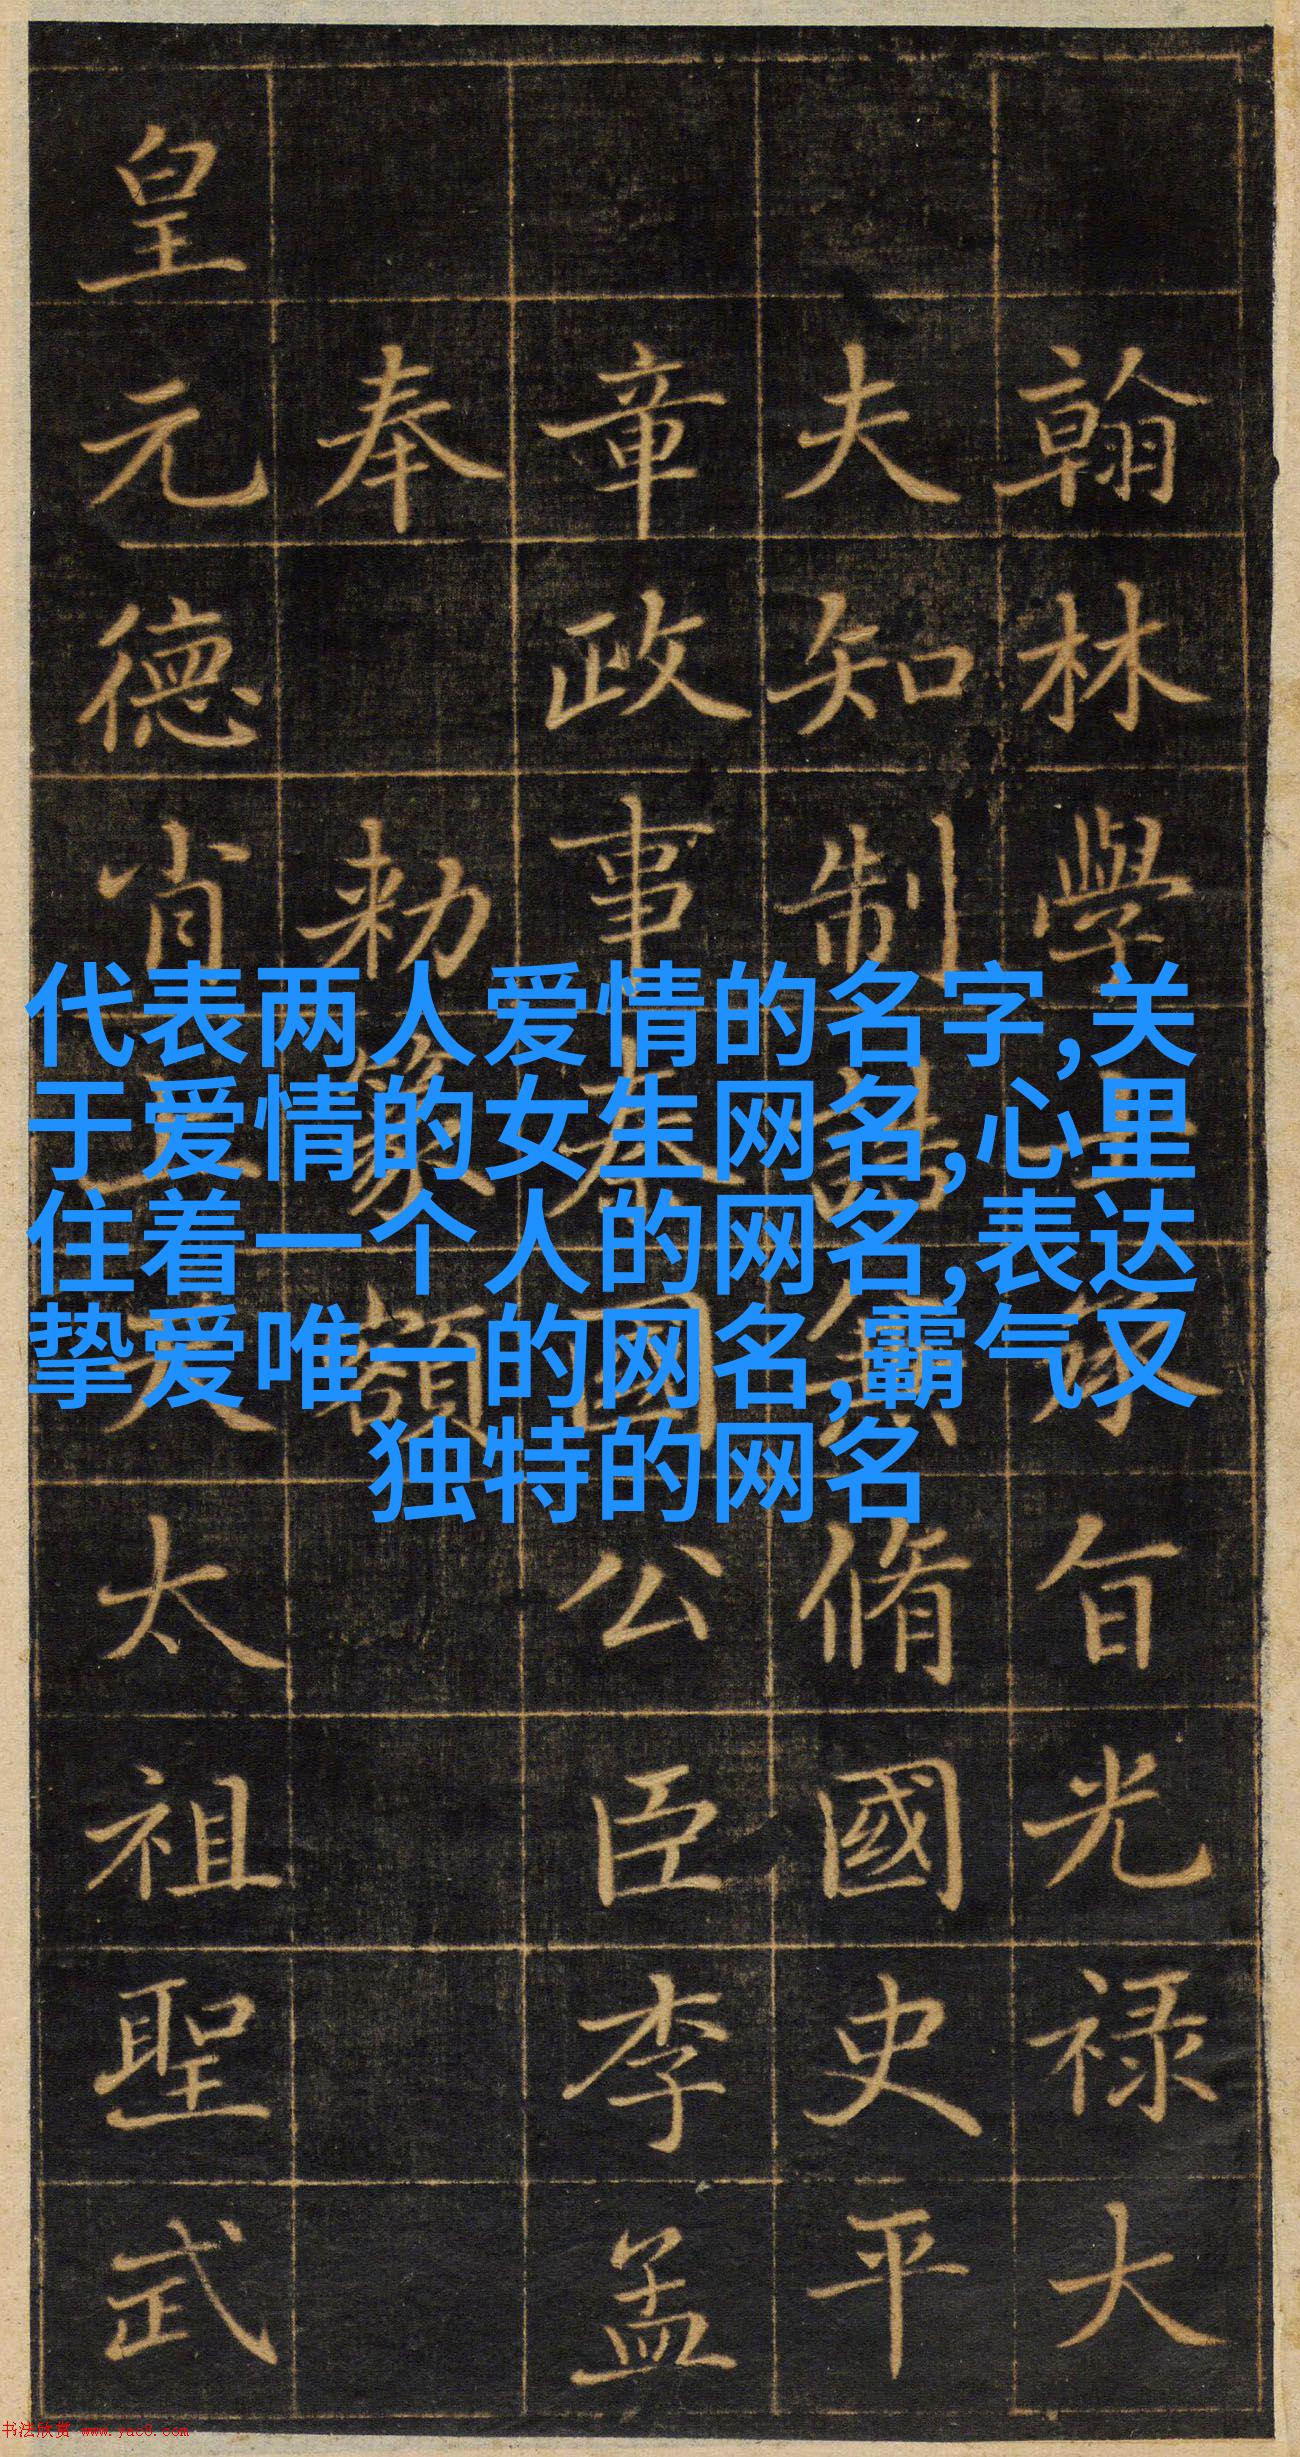 翰林學士承旨光禄大
夫知制誥兼脩國史平
章政事秦國公臣李孟
奉勑篆額
皇元德肖上天太祖聖武
代表两人爱情的名字,关
于爱情的女生网名,心里
住着一个人的网名,表达
挚爱唯一的网名,霸气又
独特的网名
书法欣赏 www.yac8.com